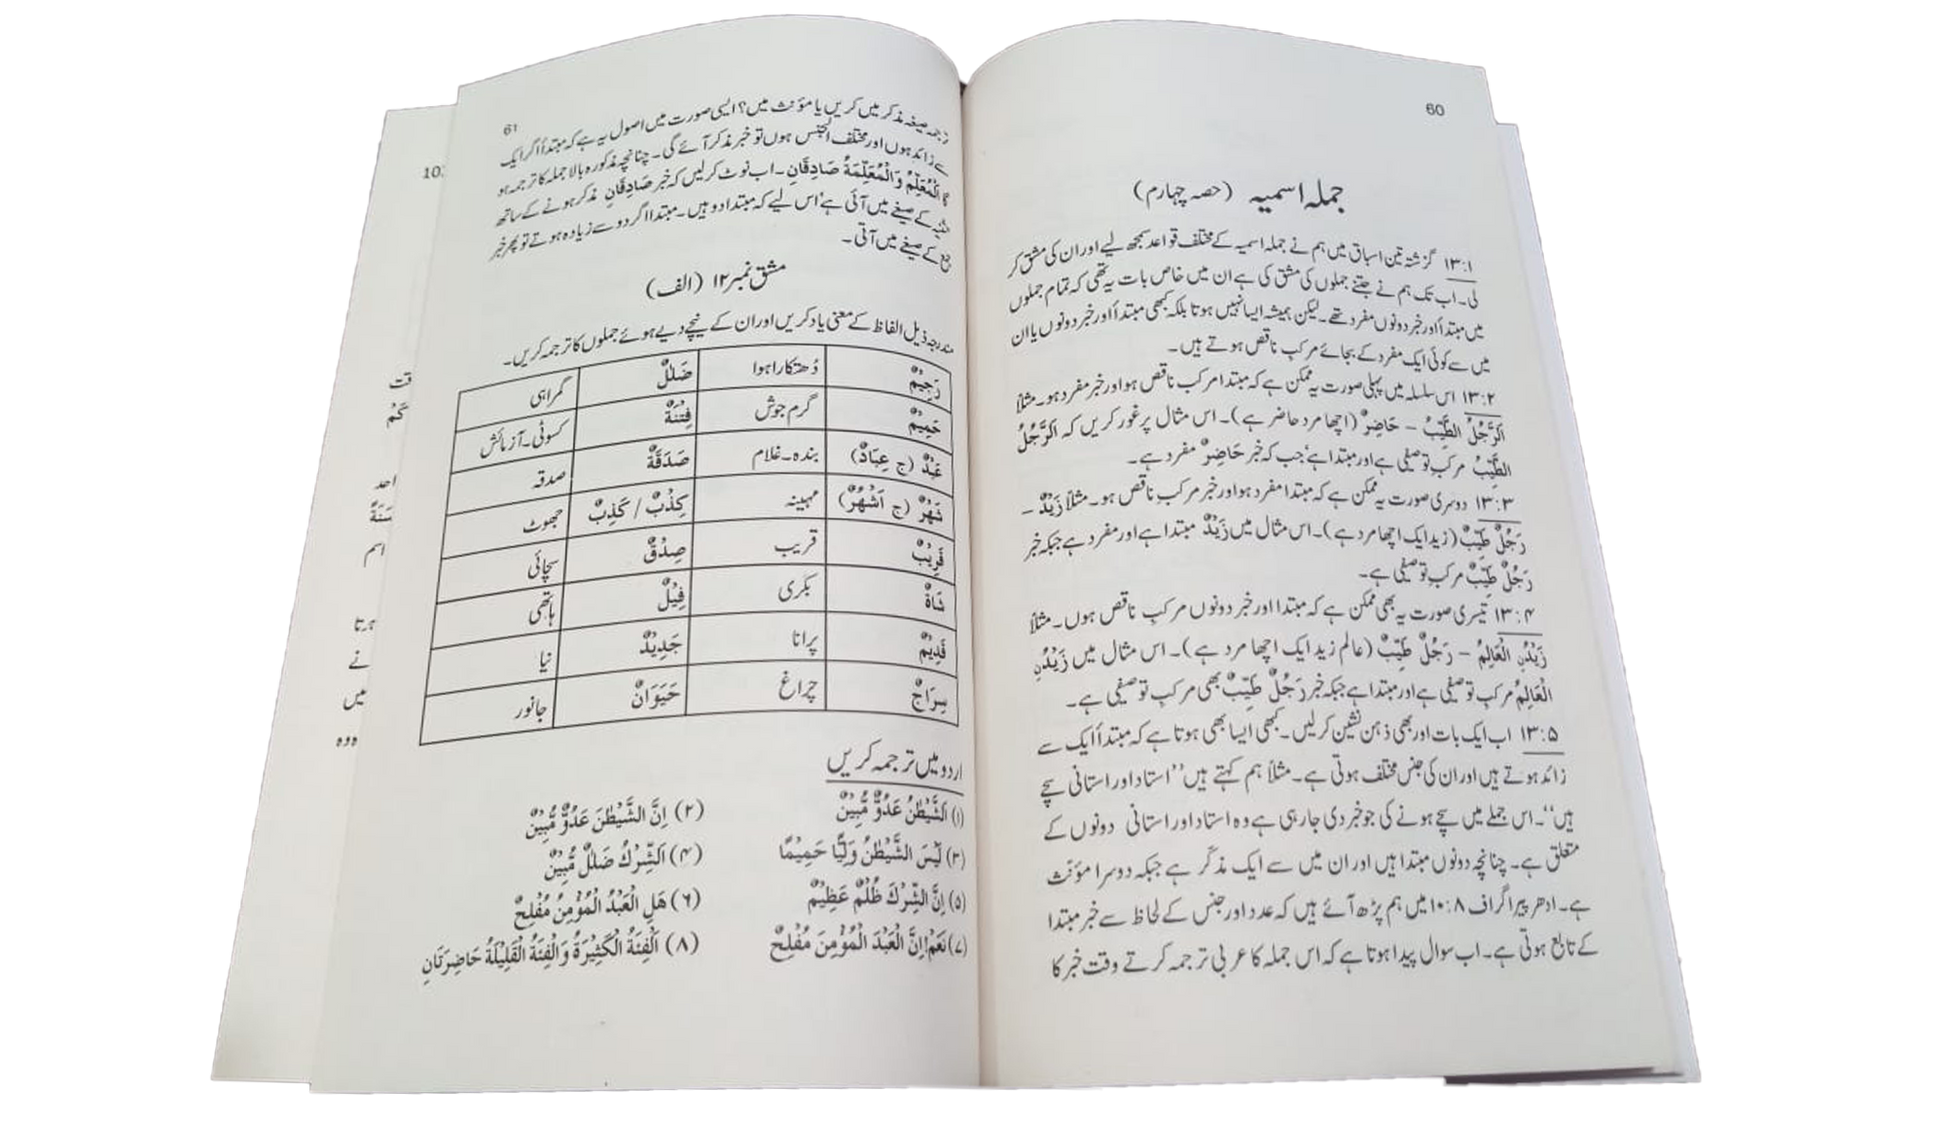 60
جملہ اسمیہ (حصہ چہارم)
۱۳:۱ گزشتہ تین اسباق میں ہم نے جملہ اسمیہ کے مختلف قواعد سمجھ لیے اور ان کی مشق کر
لی۔ اب تک ہم نے جتنے جملوں کی مشق کی ہے ان میں خاص بات یہ تھی کہ تمام جملوں
میں مبتدأ اور خبر دونوں مفرد تھے۔ لیکن ہمیشہ ایسا نہیں ہوتا بلکہ کبھی مبتدأ اور خبر دونوں یا ان
میں سے کوئی ایک مفرد کے بجائے مرکب ناقص ہوتے ہیں۔
۱۳:۲ اس سلسلہ میں پہلی صورت یہ ممکن ہے کہ مبتدا مرکب ناقص ہو اور خبر مفرد ہو۔ مثلاً
اَلرَّجُلُ الطَّيِّبُ – حَاضِرٌ (اچھا مرد حاضر ہے)۔ اس مثال پر غور کریں کہ اَلرَّجُلُ
الطَّيِّبُ مرکب توصیفی ہے اور مبتدا ہے‘ جب کہ خبر حَاضِرٌ مفرد ہے۔
۱۳:۳ دوسری صورت یہ ممکن ہے کہ مبتدا مفرد ہو اور خبر مرکب ناقص ہو۔ مثلاً زَيْدٌ –
رَجُلٌ طَيِّبٌ (زید ایک اچھا مرد ہے)۔ اس مثال میں زَيْدٌ مبتدا ہے اور مفرد ہے جبکہ خبر
رَجُلٌ طَيِّبٌ مرکبِ توصیفی ہے۔
۱۳:۴ تیسری صورت یہ بھی ممکن ہے کہ مبتدا اور خبر دونوں مرکبِ ناقص ہوں۔ مثلاً
زَيْدُنِ الْعَالِمُ – رَجُلٌ طَيِّبٌ (عالم زید ایک اچھا مرد ہے)۔ اس مثال میں زَيْدُنِ
الْعَالِمُ مرکبِ توصیفی ہے اور مبتدا ہے جبکہ خبر رَجُلٌ طَيِّبٌ بھی مرکب توصیفی ہے۔
۱۳:۵ اب ایک بات اور بھی ذہن نشین کر لیں۔ کبھی ایسا بھی ہوتا ہے کہ مبتدأ ایک سے
زائد ہوتے ہیں اور ان کی جنس مختلف ہوتی ہے۔ مثلاً ہم کہتے ہیں ’’استاد اور استانی سچے
ہیں‘‘۔ اس جملے میں سچے ہونے کی جو خبر دی جا رہی ہے وہ استاد اور استانی دونوں کے
متعلق ہے۔ چنانچہ دونوں مبتدا ہیں اور ان میں سے ایک مذکّر ہے جبکہ دوسرا مؤنث
ہے۔ ادھر پیراگراف ۱۰:۸ میں ہم پڑھ آئے ہیں کہ عدد اور جنس کے لحاظ سے خبر مبتدا
کے تابع ہوتی ہے۔ اب سوال پیدا ہوتا ہے کہ اس جملہ کا عربی ترجمہ کرتے وقت خبر کا
61
ترجمہ صیغہ مذکر میں کریں یا مؤنث میں؟ ایسی صورت میں اصول یہ ہے کہ مبتدأ اگر ایک
سے زائد ہوں اور مختلف الجنس ہوں تو خبر مذکر آئے گی۔ چنانچہ مذکورہ بالا جملہ کا ترجمہ ہو
گا اَلْمُعَلِّمُ وَالْمُعَلِّمَةُ صَادِقَانِ۔ اب نوٹ کر لیں کہ خبر صَادِقَانِ مذکر ہونے کے ساتھ
تثنیہ کے صیغے میں آئی ہے‘ اس لیے کہ مبتدا دو ہیں۔ مبتدا اگر دو سے زیادہ ہوتے تو پھر خبر
جمع کے صیغے میں آتی۔
مشق نمبر ۱۲ (الف)
مندرجہ ذیل الفاظ کے معنی یاد کریں اور ان کے نیچے دیے ہوئے جملوں کا ترجمہ کریں۔
رَجِيْمٌ دُھتکارا ہوا ضَلٰلٌ گمراہی
حَمِيْمٌ گرم جوش فِتْنَةٌ کسوٹی۔ آزمائش
عَبْدٌ (ج عِبَادٌ) بندہ۔ غلام صَدَقَةٌ صدقہ
شَهْرٌ (ج اَشْهُرٌ) مہینہ كِذْبٌ / كَذِبٌ جھوٹ
قَرِيْبٌ قریب صِدْقٌ سچائی
شَاةٌ بکری فِيْلٌ ہاتھی
قَدِيْمٌ پرانا جَدِيْدٌ نیا
سِرَاجٌ چراغ حَيَوَانٌ جانور
اردو میں ترجمہ کریں
(۱) اَلشَّيْطٰنُ عَدُوٌّ مُّبِيْنٌ (۲) اِنَّ الشَّيْطٰنَ عَدُوٌّ مُّبِيْنٌ
(۳) لَيْسَ الشَّيْطٰنُ وَلِيًّا حَمِيْمًا (۴) اَلشِّرْكُ ضَلٰلٌ مُّبِيْنٌ
(۵) اِنَّ الشِّرْكَ ظُلْمٌ عَظِيْمٌ (۶) هَلِ الْعَبْدُ الْمُؤْمِنُ مُفْلِحٌ
(۷) نَعَمْ! اِنَّ الْعَبْدَ الْمُؤْمِنَ مُفْلِحٌ (۸) اَلْفِئَةُ الْكَثِيْرَةُ وَالْفِئَةُ الْقَلِيْلَةُ حَاضِرَتَانِ